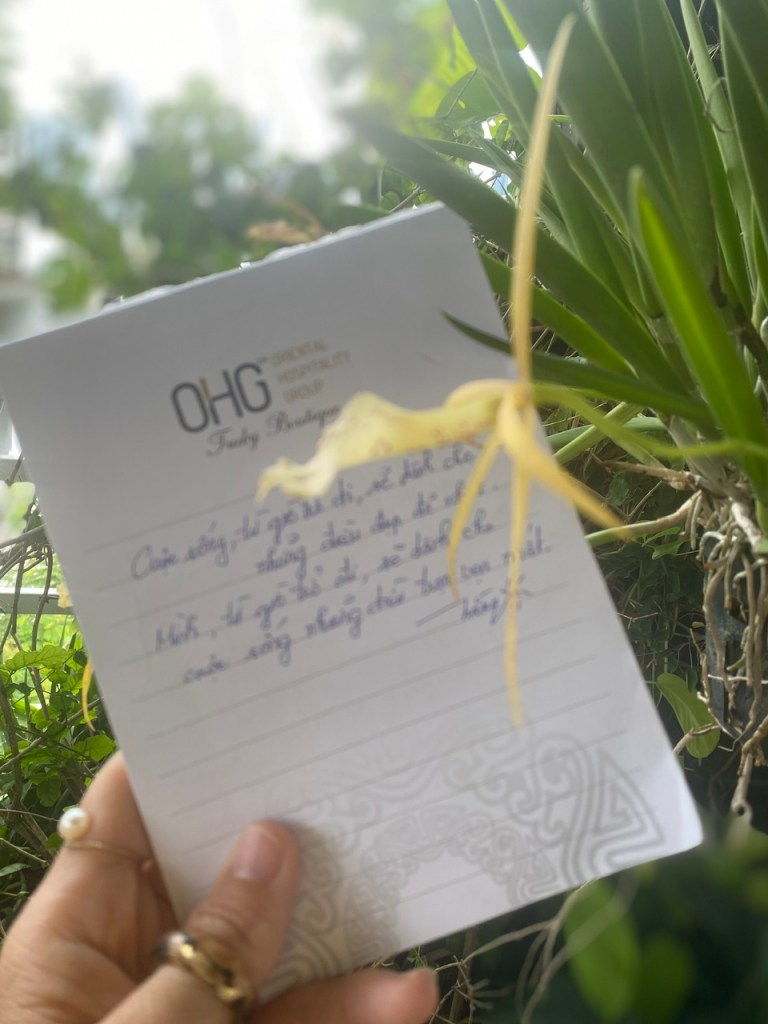 OHG
ORIENTAL
HOSPITALITY
GROUP
Truly Boutique
Cuộc sống, từ giờ trở đi, sẽ dành cho
những điều đẹp đẽ
Mình, từ giờ trở đi, sẽ dành cho
cuộc sống những điều trọn vẹn nhất.